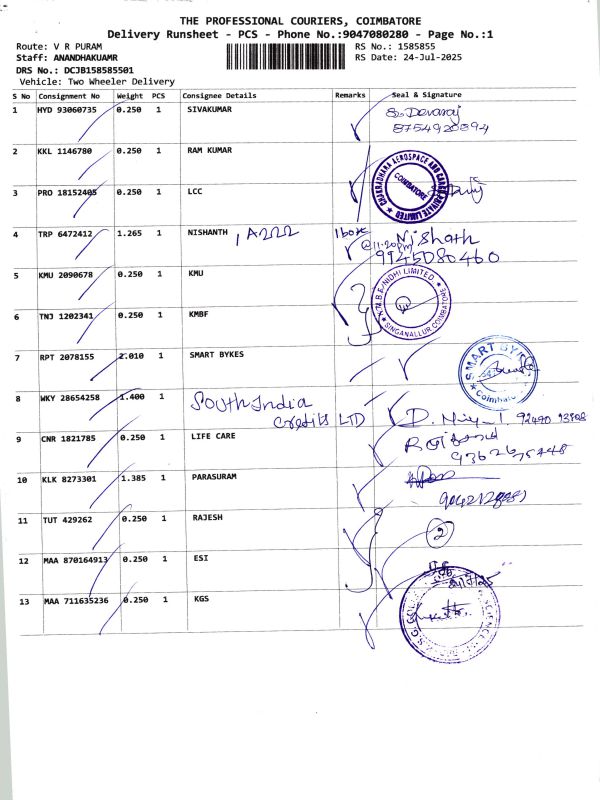 THE PROFESSIONAL COURIERS, COIMBATORE
Delivery Runsheet - PCS - Phone No.:9047080280 - Page No.:1
Route: V R PURAM
RS No.: 1585855
Staff: ANANDHAKUAMR
RS Date: 24-Jul-2025
DRS No.: DCJB158585501
Vehicle: Two Wheeler Delivery
S No Consignment No Weight PCS Consignee Details Remarks Seal & Signature
1 HYD 93060735 0.250 1 SIVAKUMAR Devaraj
8754920894
2 KKL 1146780 0.250 1 RAM KUMAR
COIMBATORE
3 PRO 18152405 0.250 1 LCC
4 TRP 6472412 1.265 1 NISHANTH 1 box Nishath
@11:20pm 9945080460
5 KMU 2090678 0.250 1 KMU
NIDHI LIMITED
SINGANALLUR COIMBATORE
6 TNJ 1202341 0.250 1 KMBF
7 RPT 2078155 2.010 1 SMART BYKES
SMART BYKES
Coimbatore
8 WKY 28654258 1.400 1 South India
Credits LTD
9 CNR 1821785 0.250 1 LIFE CARE
10 KLK 8273301 1.385 1 PARASURAM
11 TUT 429262 0.250 1 RAJESH
2
12 MAA 870164913 0.250 1 ESI
13 MAA 711635236 0.250 1 KGS